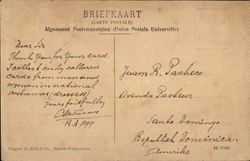 BRIEFKAART
(CARTE POSTALE)
Algemeene Postvereeniging (Union Postale Universelle)
Dear Sir
Thank you for your card.
I collect only coloured
cards from men and
woman in national
costumes, dresses
yours faithfully
Juan R. Pacheco
Avenida Pasteur
Santo Domingo
Republiek Dominicai
Amerika